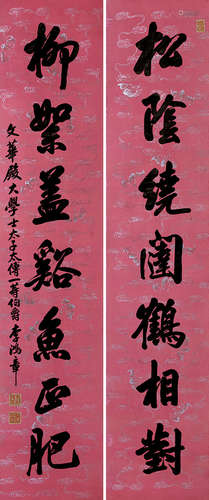 松陰繞閣鶴相對
柳絮蓋谿魚正肥
文華殿大學士太子太傅一等伯爵李鴻章